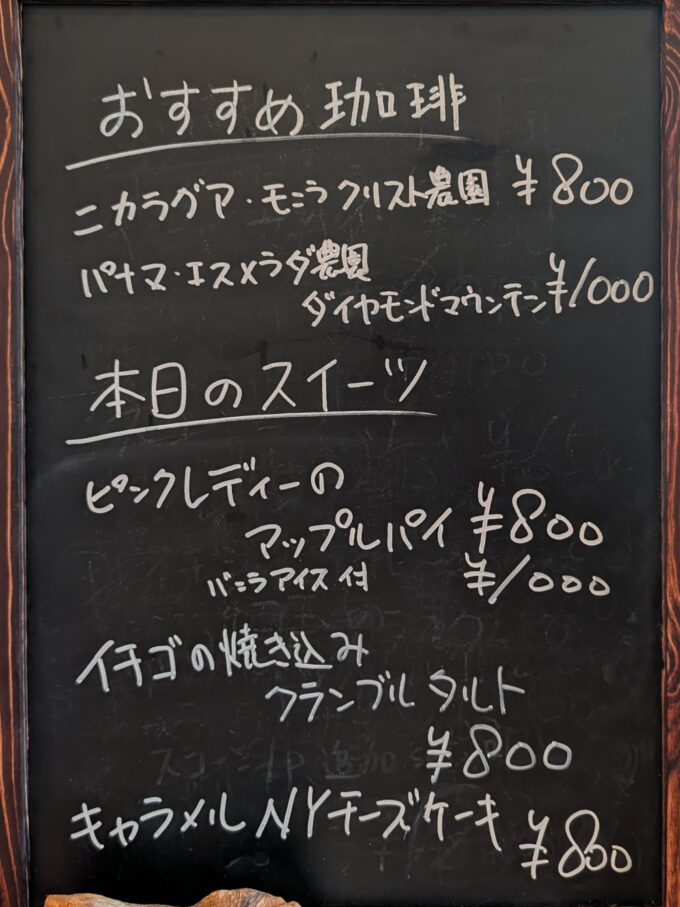 おすすめ珈琲
ニカラグア・モニラクリスト農園 ¥800
パナマ・エスメラダ農園
ダイヤモンドマウンテン ¥1000
本日のスイーツ
ピンクレディーの
マップルパイ ¥800
バニラアイス付 ¥1000
イチゴの焼き込み
クランブルタルト
¥800
キャラメルNYチーズケーキ ¥800